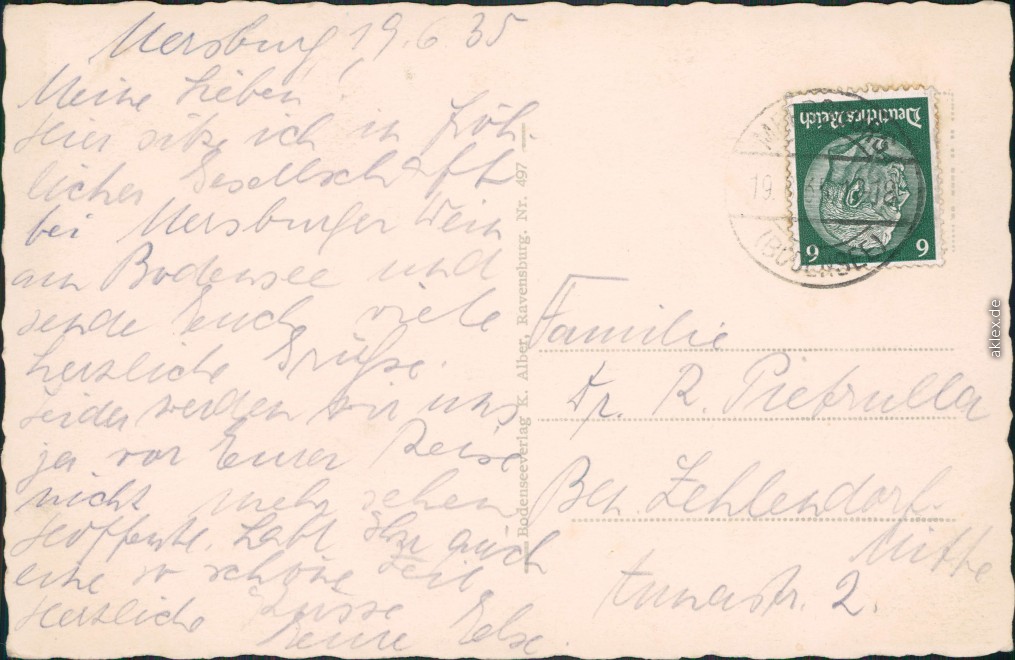 Mersburg 19.6.35
Meine Lieben!
Hier sitze ich in fröh-
licher Gesellschaft
bei Mersburger Wein
am Bodensee und
sende Euch viele
herzliche Grüße.
Leider werden wir uns
ja vor Eurer Reise
nicht mehr sehen
Hoffentl. habt Ihr auch
eine so schöne Zeit
Herzliche Grüsse
Eure Else.
Bodenseeverlag K. Alber, Ravensburg. Nr. 497
Deutsches Reich
6 6
19.
(BODENSEE)
Familie
Dr. R. Pietrulla
Bln. Zehlendorf.
Mitte
Annastr. 2.
aklex.de